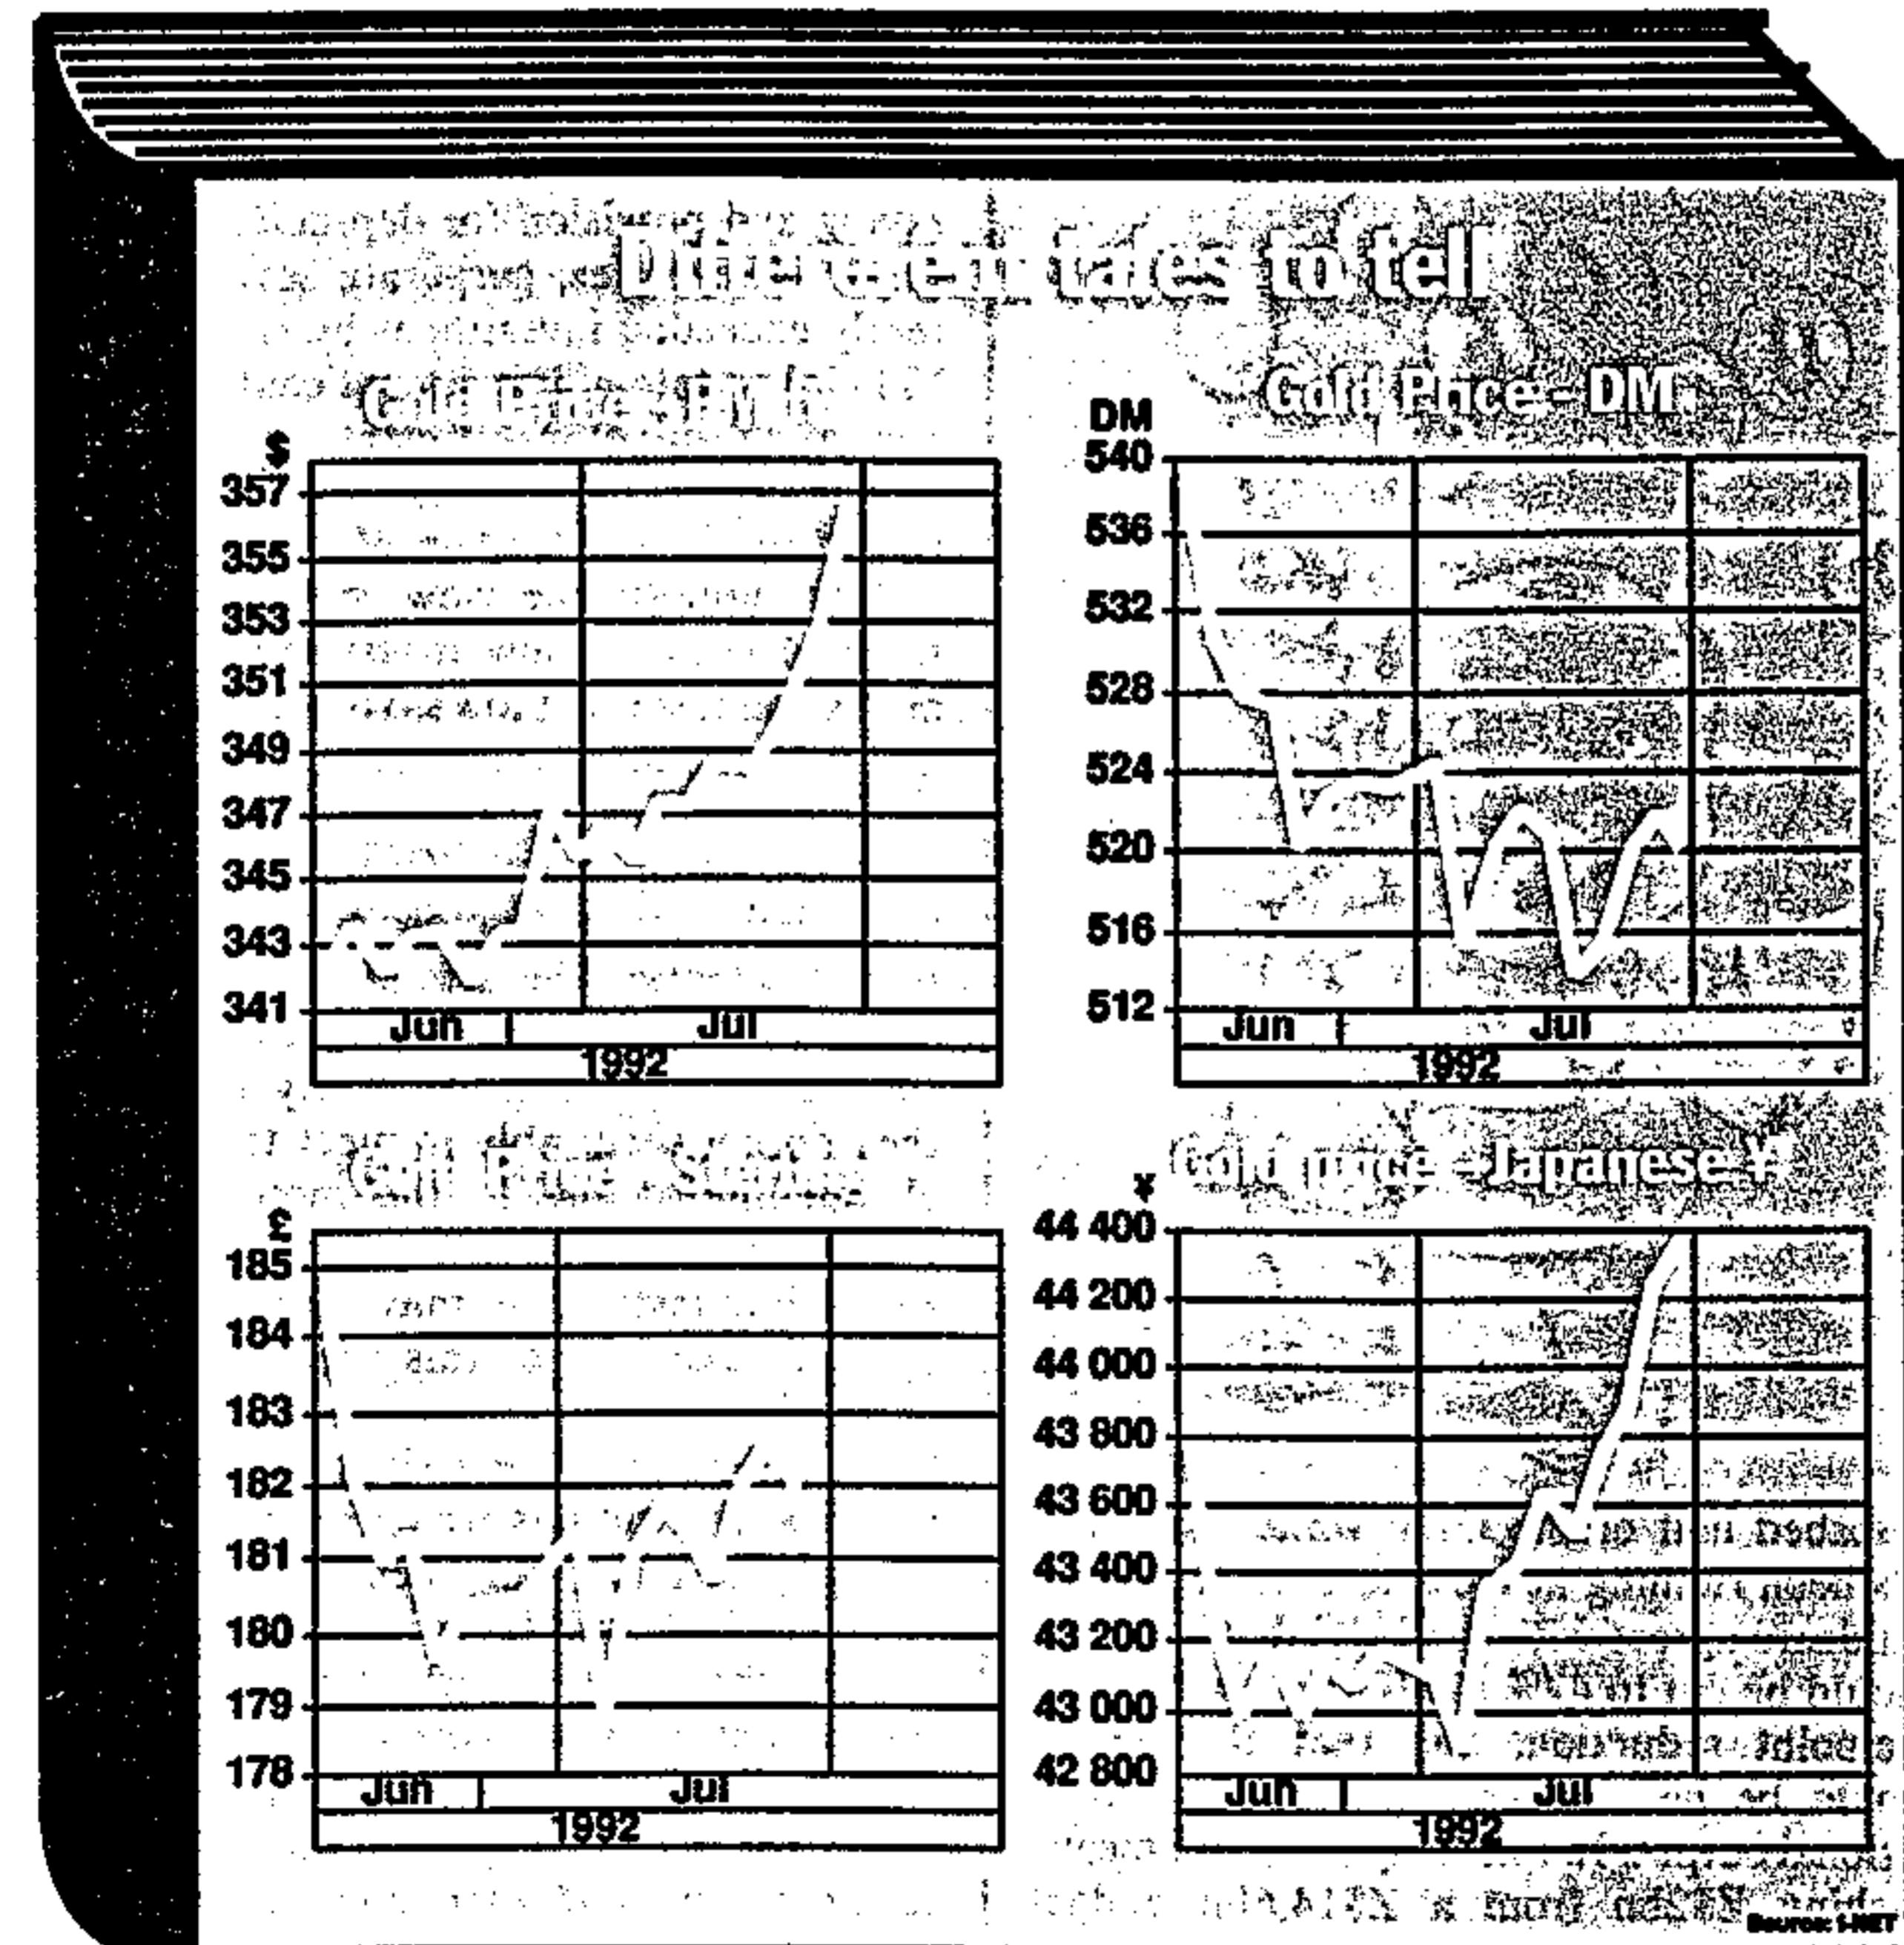 Different tales to tell
Gold Price - DM
$
357
355
353
351
349
347
345
343
341
Jun
Jul
1992
DM
540
536
532
528
524
520
516
512
Jun
Jul
1992
Gold Price
£
185
184
183
182
181
180
179
178
Jun
Jul
1992
Gold price - Japanese ¥
¥
44 400
44 200
44 000
43 800
43 600
43 400
43 200
43 000
42 800
Jun
Jul
1992
Source: I-NET